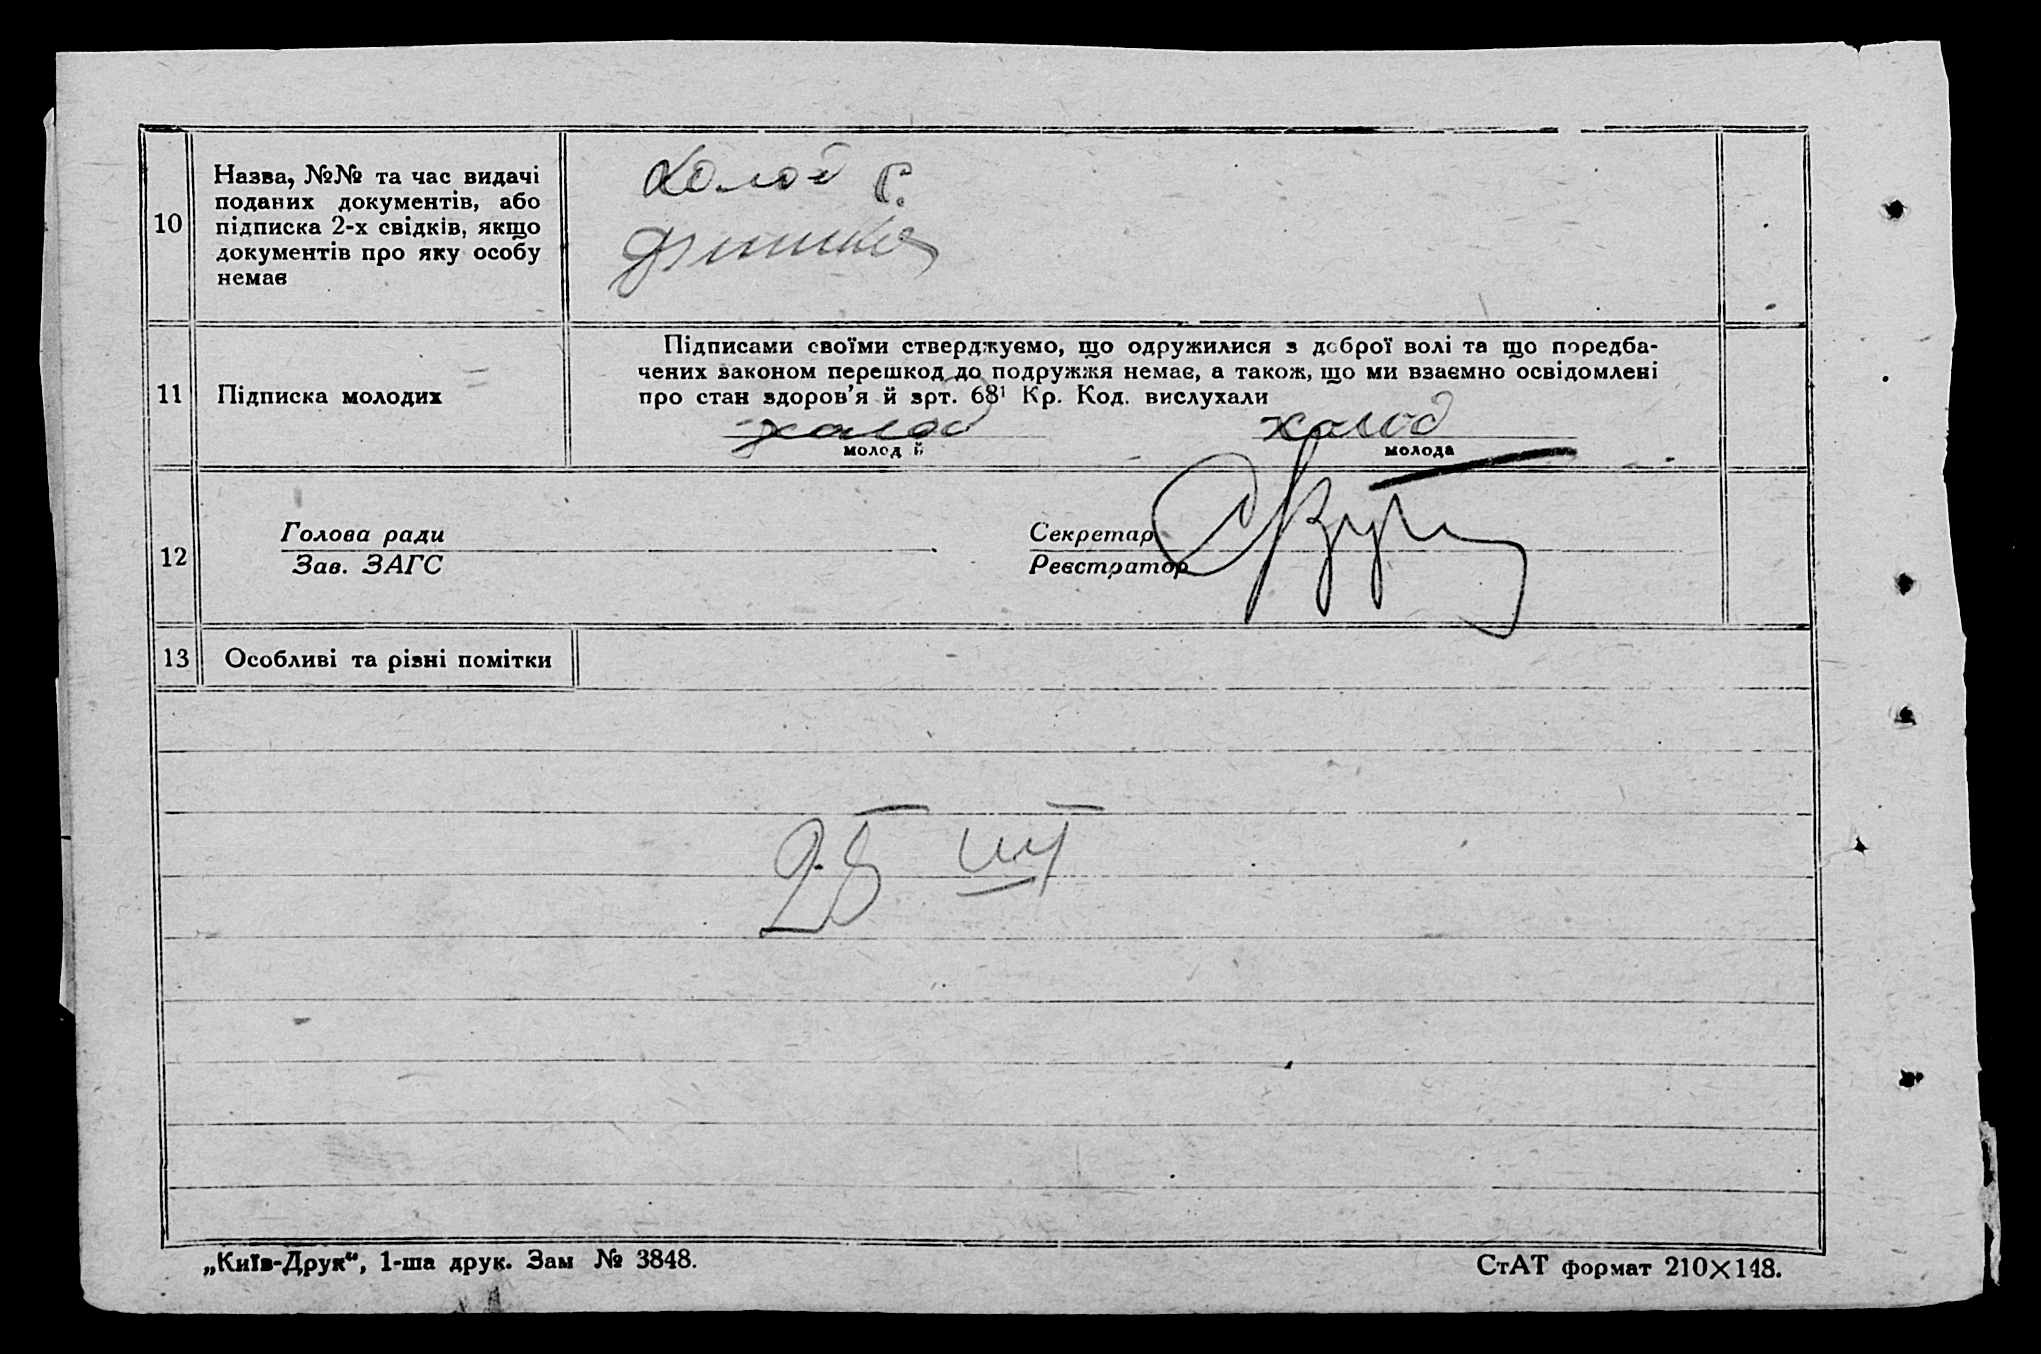 10
Назва, №№ та час видачі
поданих документів, або
підписка 2-х свідків, якщо
документів про яку особу
немає
Холод С.
11
Підписка молодих
Підписами своїми стверджуємо, що одружилися з доброї волі та що передба-
чених законом перешкод до подружжя немає, а також, що ми взаємно освідомлені
про стан здоров'я й арт. 68¹ Кр. Код. вислухали
холод холод
молод й молода
12
Голова ради Секретар
Зав. ЗАГС Реєстратор
13
Особливі та різні помітки
25 III
„Київ-Друк“, 1-ша друк. Зам № 3848. СтАТ формат 210×148.